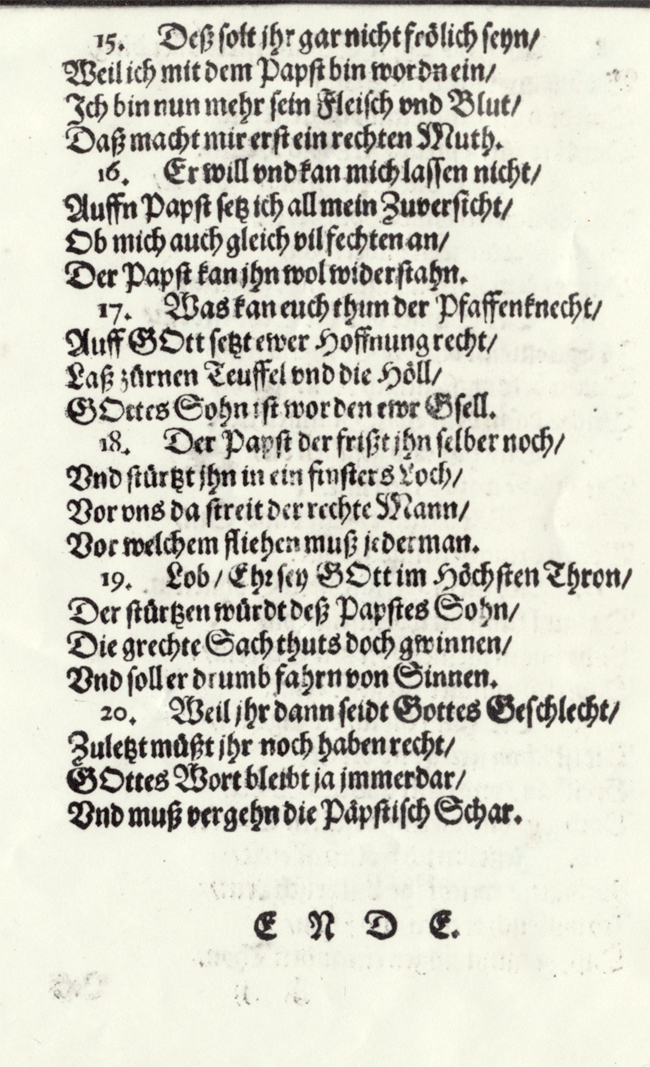 15. Deß solt jhr gar nicht frölich seyn/
Weil ich mit dem Papst bin wordn ein/
Ich bin nun mehr sein Fleisch vnd Blut/
Daß macht mir erst ein rechten Muth.
16. Er will vnd kan mich lassen nicht/
Auffn Papst setz ich all mein Zuversicht/
Ob mich auch gleich vil fechten an/
Der Papst kan jhn wol widerstahn.
17. Was kan euch thun der Pfaffenknecht/
Auff GOtt setzt ewer Hoffnung recht/
Laß zürnen Teuffel vnd die Höll/
GOttes Sohn ist worden ewr Gsell.
18. Der Papst der frißt jhn selber noch/
Vnd stürtzt jhn in ein finsters Loch/
Vor vns da streit der rechte Mann/
Vor welchem fliehen muß jederman.
19. Lob/ Ehr sey GOtt im Höchsten Thron/
Der stürtzen würdt deß Papstes Sohn/
Die grechte Sach thuts doch gwinnen/
Vnd soll er drumb fahrn von Sinnen.
20. Weil jhr dann seidt Gottes Geschlecht/
Zuletzt müßt jhr noch haben recht/
GOttes Wort bleibt ja jmmerdar/
Vnd muß vergehn die Päpstisch Schar.
E N D E.